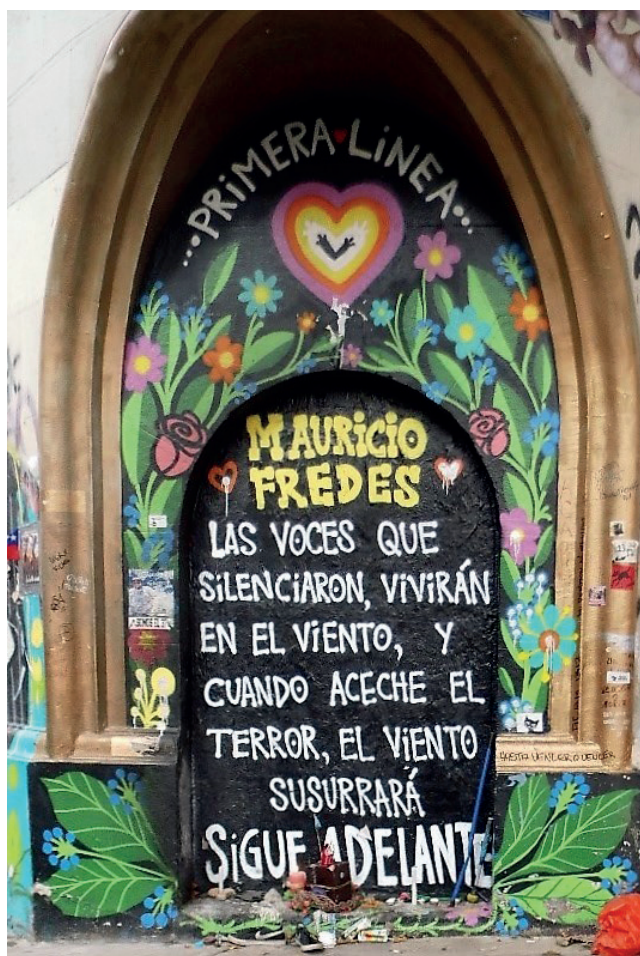 ...PRiMERA LiNEA...
MAURICIO
FREDES
LAS VOCES QUE
SiLENCiARON, VIVIRÁN
EN EL ViENTO, Y
CUANDO ACECHE EL
TERROR, EL ViENTO
SUSURRARÁ
SiGUE ADELANTE
HASTA VENCER O VENCER